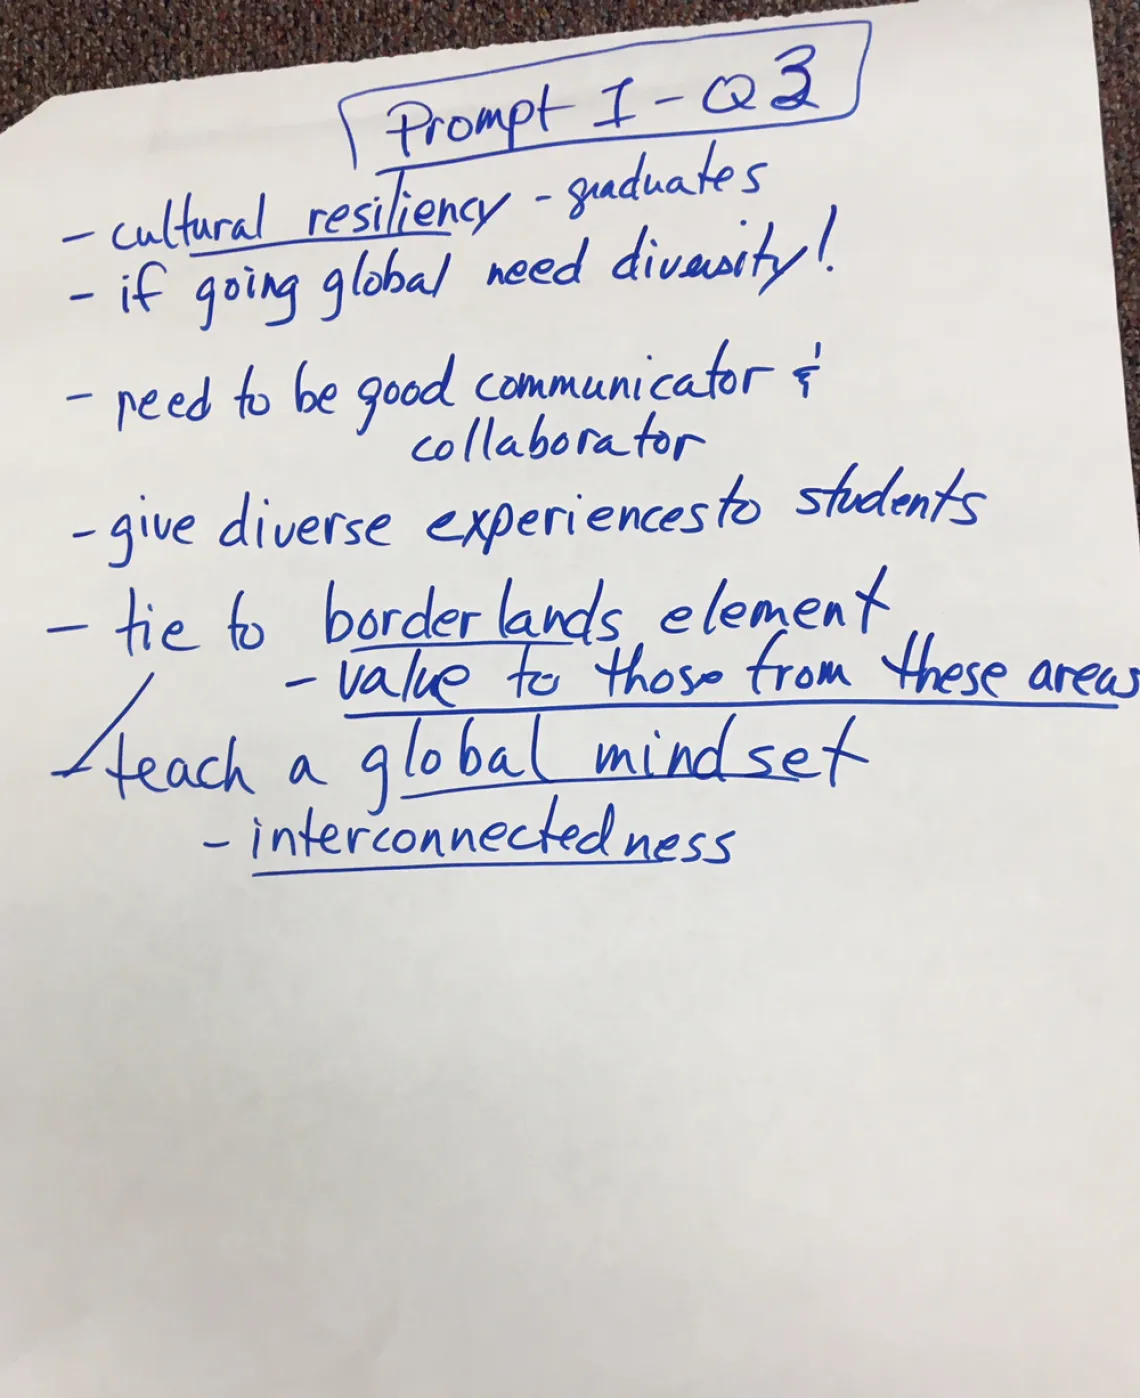 Prompt I - Q3
- cultural resiliency - graduates
- if going global need diversity!
- need to be good communicator &
collaborator
- give diverse experiences to students
- tie to borderlands element
- value to those from these areas
- teach a global mindset
- interconnectedness